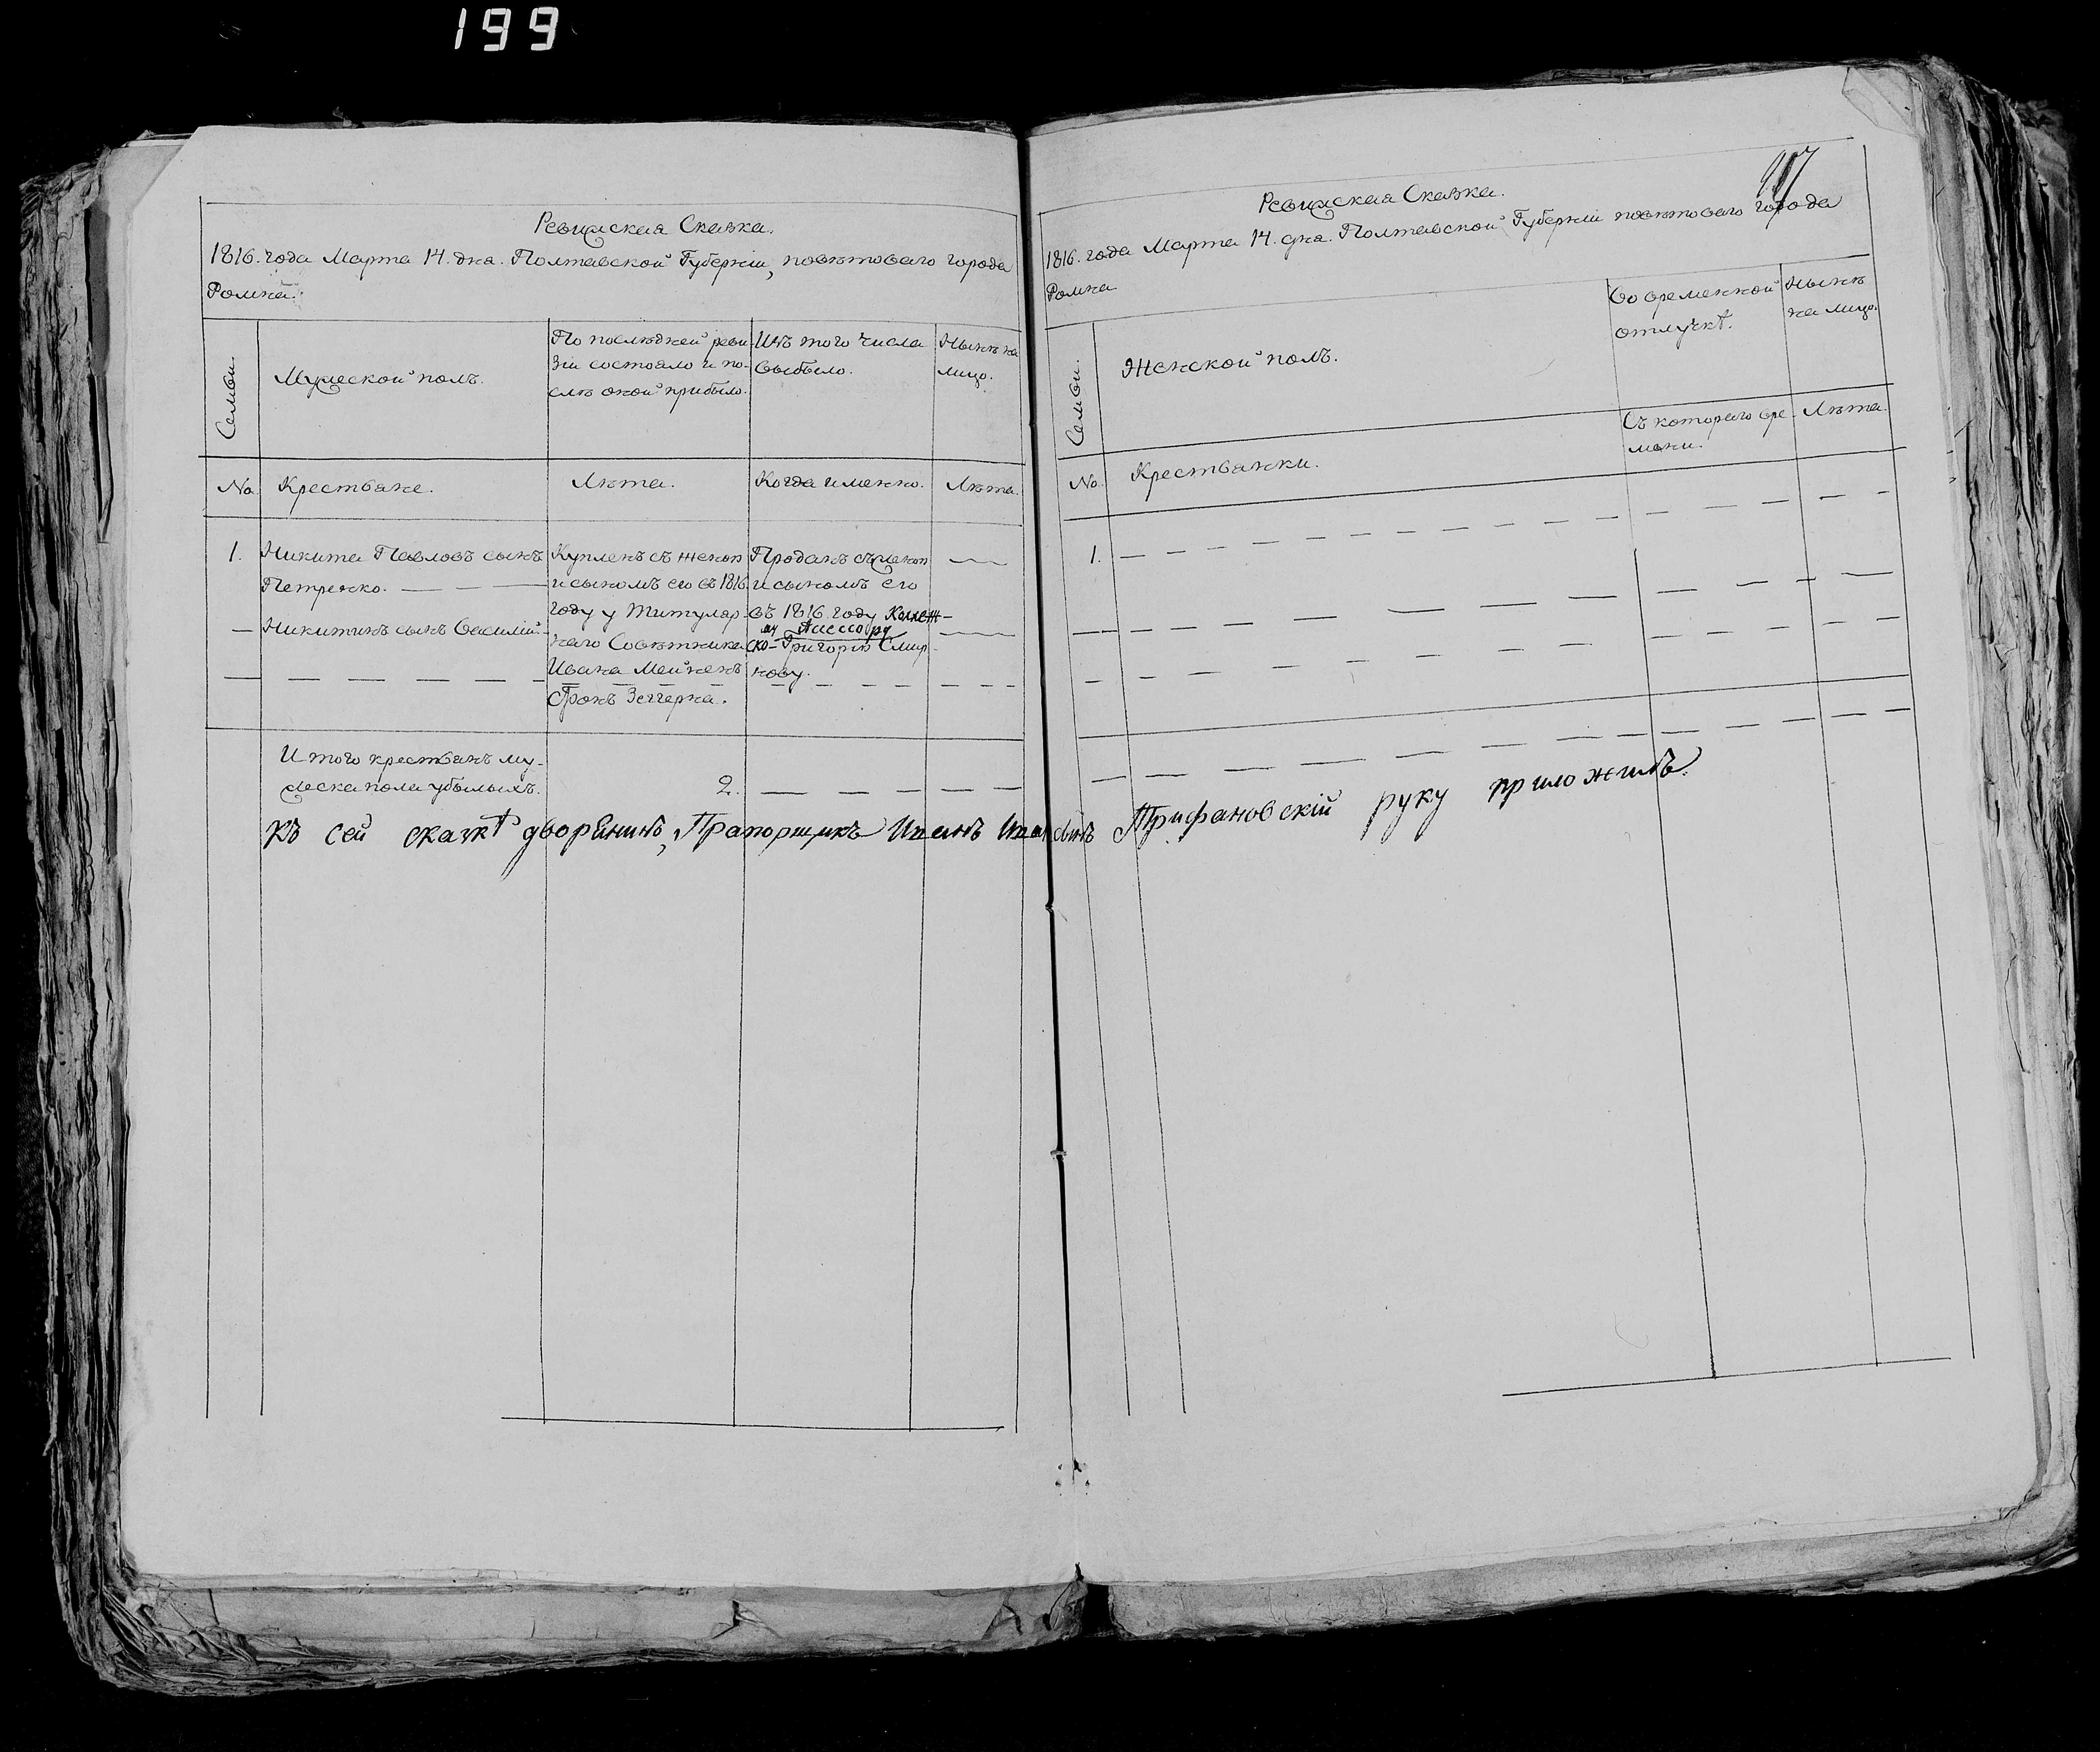 199
Ревижская Сказка.
1816. года Марта 14. дна. Полтавской Губерніи, повѣтоваго города
Ромна.
Семьи.
Мужеской полъ.
По послѣдней реви-
зіи состояло и по-
слѣ оной прибыло.
Изъ того числа
выбыло.
Нынѣ на
лицо.
No.
Крестьяне.
Лѣта.
Когда именно.
Лѣта.
1.
Никита Павловъ сынъ
Петренко.
Никитинъ сынъ Василій
Купленъ съ женою
и сыномъ его въ 1816.
году у Титуляр-
наго Совѣтника
Ивана
Проданъ съ женою
и сыномъ его
въ 1816. году Коллеж-
ско- му Ассесору
Григорію Смир-
нову.
Итого крестьянъ му-
жеска пола убылыхъ.
2.
Ревижская Сказка.
1816. года Марта 14. дна. Полтавской Губерніи повѣтоваго города
Ромна
Семьи.
Женской полъ.
Во временной
отлучкѣ.
Нынѣ
на лицо.
Съ котораго вре-
мени.
Лѣта.
No.
Крестьянки.
1.
Къ сей сказкѣ дворянинъ, Прапорщикъ Иванъ Ивановъ сынъ Трифановскій руку приложилъ.